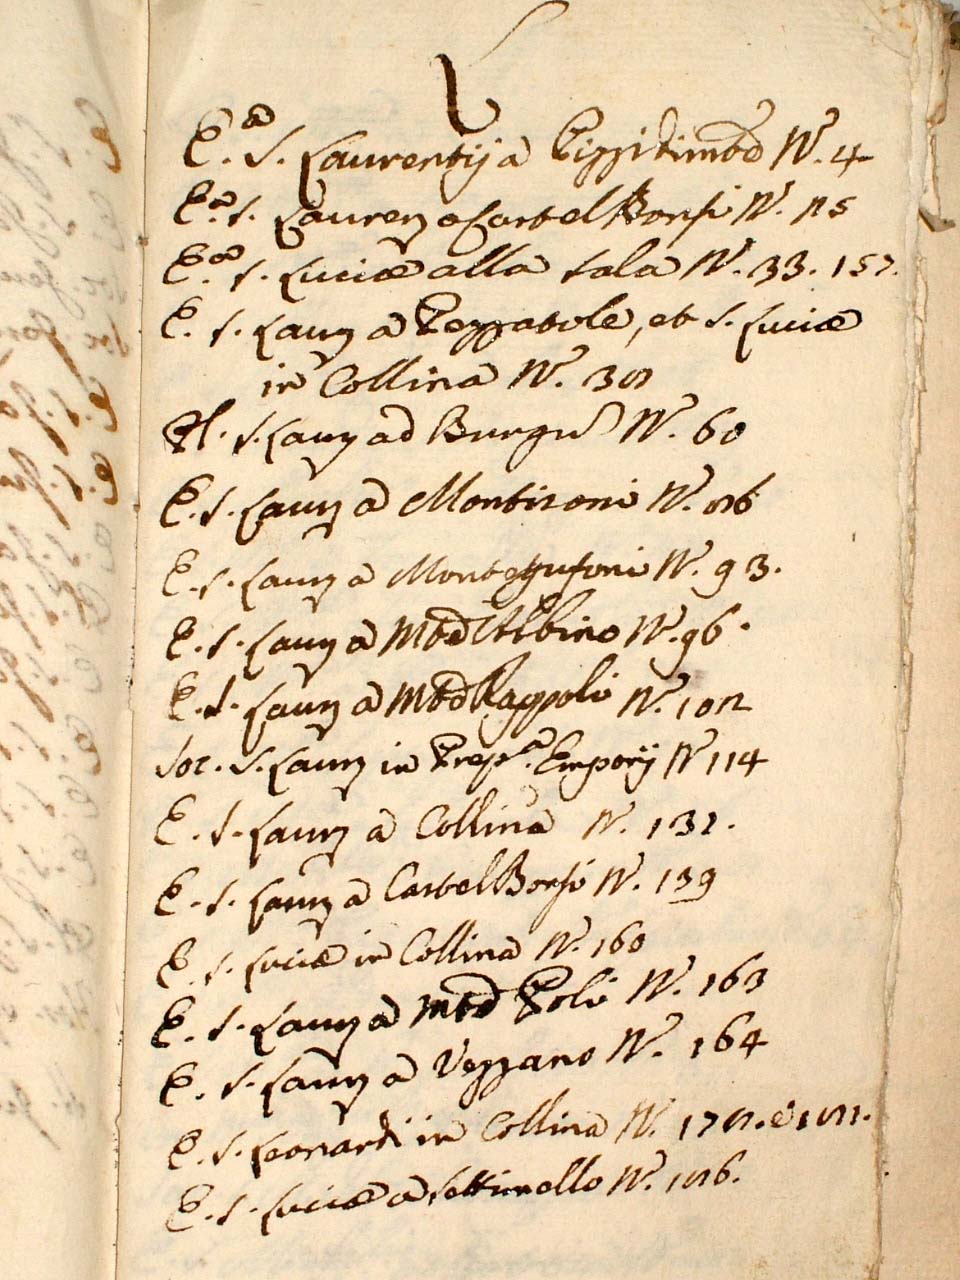 L
E.a S. Laurentij a Pizzidimte N. 4
E.a S. Laurez a Castel Bonsi N.
E.a S. Luciæ alla Sala N. 33. 157.
E. S. Laurz a Pezzatole, et S. Luciæ
in Collina N.
S. Laurz ad Burgu N. 60
E. S. Laurz a Montisoni N.
E. S. Laurz a Montegufoni N. 93.
E. S. Laurz a Mte Albino N. 96.
E. S. Laurz a Mte Rappoli N.
Soc. S. Laurz in Prepa. Emporij N 114
E. S. Laurz a Collina N. 131.
E. S. Laurz a Castel Bonsi N. 139
E. S. Luciæ in Collina N. 160
E. S. Laurz a Mte Poli N. 163
E. S. Laurz a Vezzano N. 164
E. S. Leonardi in Collina N.
E. S. Luciæ a Settimello N.